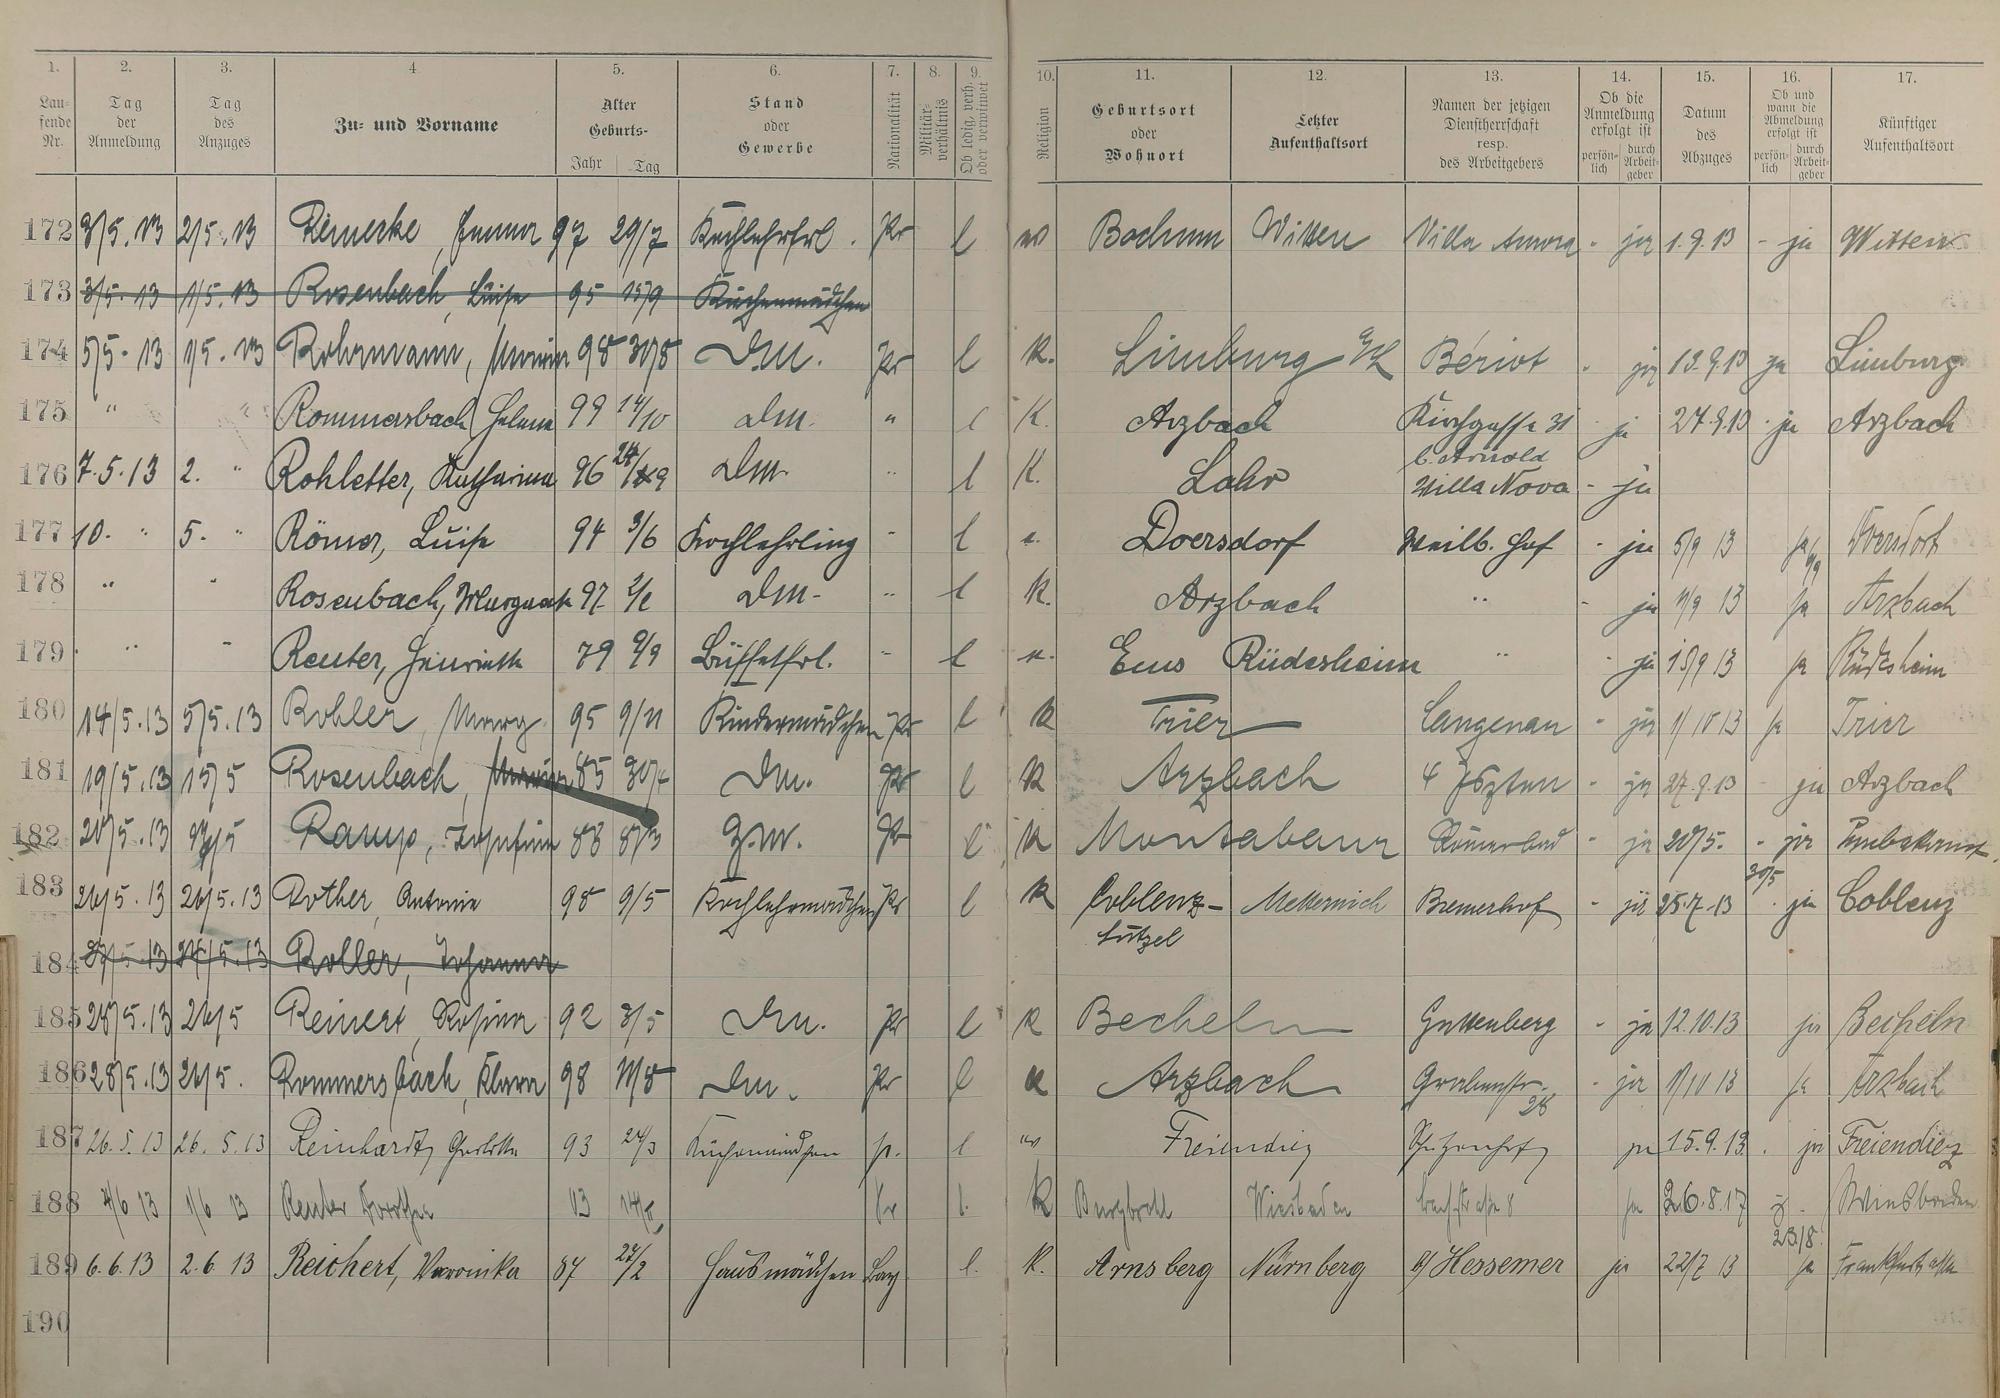 1. 2. 3. 4 5. 6. 7. 8. 9. 10. 11. 12. 13. 14. 15. 16. 17.
Lau-fende Nr. Tag der Anmeldung Tag des Anzuges Zu- und Vorname Alter Geburts- Jahr Tag Stand oder Gewerbe Nationalität Militär-verhältnis Ob ledig, verh. oder verwitwet Religion Geburtsort oder Wohnort Letzter Aufenthaltsort Namen der jetzigen Dienstherrschaft resp. des Arbeitgebers Ob die Anmeldung erfolgt ist persön-lich durch Arbeit-geber Datum des Abzuges Ob und wann die Abmeldung erfolgt ist persön-lich durch Arbeit-geber Künftiger Aufenthaltsort
172 3/5. 13 2/5. 13 Reinerke, 97 29/7 Kochlehrfrl. Pr l Bochum Witten Villa - ja 1.9.13 - ja Witten
173 3/5. 13 1/5. 13 Rosenbach, Luise 95 15/9 Küchenmädchen
174 5/5. 13 1/5. 13 98 30/8 Dm. Pr l K. Limburg a/L Bériot - ja 13.9.13 ja Limburg
175 " " Rommersbach Helene 99 14/10 Dm. " l K. Arzbach Kirchgasse 31 - ja 27.9.13 - ja Arzbach
176 7.5.13 2. " Rohletter, Katharina 96 Dm. " l K. Lahr b. Arnold
Villa Nova - ja
177 10. " 5. " Römer, Luise 94 3/6 Kochlehrling " l Doersdorf Weilb. Hof - ja 5/9 13 ja
178 " " Rosenbach, Margareth 97 Dm - " l K. Arzbach " - ja 13 ja Arzbach
179 " " Reuter, Henriette 79 9/9 Büffetfrl. - l Ems Rüdesheim " - ja 15/9 13 ja Rüdesheim
180 14/5.13 5/5.13 Rohler, Marg. 95 9/11 Kindermädchen Pr l K Trier Langenau - ja 1/10 13 ja Trier
181 19/5.13 15/5 Rosenbach, 85 30/4 Dm. Pr l K Arzbach 4 - ja 27.9.13 - ja Arzbach
182 20/5.13 Ramp, Josefine 88 Pr l K Montabaur Römerbad - ja 20/5. - ja Unbekannt.
183 26/5.13 26/5.13 Rother, Antonie 98 9/5 Kochlehrmädchen Pr l K Coblenz- Metternich Bremerhof - ja 25.7.13 30/5 - ja Coblenz
Lützel
184 13 13 Roller, Johanna
185 28/5.13 26/5 Reinert, Rosina 92 3/5 Dm. Pr l K Becheln Guttenberg - ja 12.10.13 ja Becheln
186 28/5.13 26/5. Rommersbach, Klara 98 Dm. Pr l K Arzbach Grabenstr.
28 - ja 1/10 13 ja Arzbach
187 26.5.13 26.5.13 Reinhardt, 93 24/3 Küchenmädchen p. l Freiendiez Schützenhof ja 15.9.13. - ja Freiendiez
188 4/6 13 1/6 13 Reuter Dorothea 13 Pr l. K Burgbrohl Wiesbaden ja 26.8.17 Wiesbaden
23/8.
189 6.6.13 2.6.13 Reichert, Veronika 87 27/2 Hausmädchen Bay l. K. Arnsberg Nürnberg b/ Hessemer ja 22/7 13 ja
190